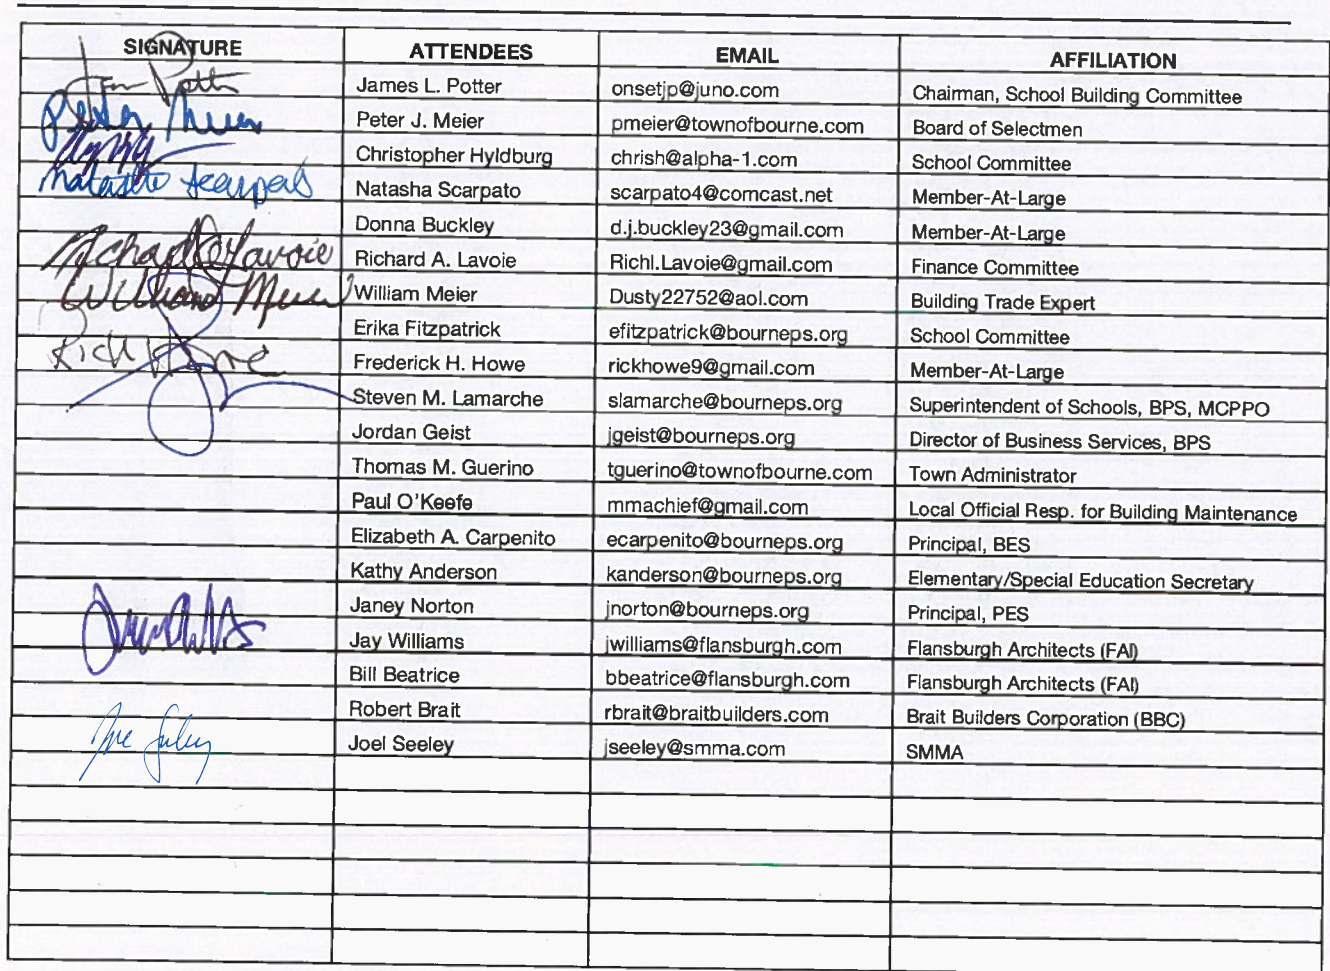 SIGNATURE ATTENDEES EMAIL AFFILIATION
James L. Potter onsetjp@juno.com Chairman, School Building Committee
Peter J. Meier pmeier@townofbourne.com Board of Selectmen
Christopher Hyldburg chrish@alpha-1.com School Committee
Natasha Scarpato Natasha Scarpato scarpato4@comcast.net Member-At-Large
Donna Buckley d.j.buckley23@gmail.com Member-At-Large
Lavoie Richard A. Lavoie Richl.Lavoie@gmail.com Finance Committee
William Meier William Meier Dusty22752@aol.com Building Trade Expert
Erika Fitzpatrick efitzpatrick@bourneps.org School Committee
Rich Howe Frederick H. Howe rickhowe9@gmail.com Member-At-Large
Steven M. Lamarche slamarche@bourneps.org Superintendent of Schools, BPS, MCPPO
Jordan Geist jgeist@bourneps.org Director of Business Services, BPS
Thomas M. Guerino tguerino@townofbourne.com Town Administrator
Paul O'Keefe mmachief@gmail.com Local Official Resp. for Building Maintenance
Elizabeth A. Carpenito ecarpenito@bourneps.org Principal, BES
Kathy Anderson kanderson@bourneps.org Elementary/Special Education Secretary
Janey Norton jnorton@bourneps.org Principal, PES
Jay Williams jwilliams@flansburgh.com Flansburgh Architects (FAI)
Bill Beatrice bbeatrice@flansburgh.com Flansburgh Architects (FAI)
Robert Brait rbrait@braitbuilders.com Brait Builders Corporation (BBC)
Joel Seeley jseeley@smma.com SMMA